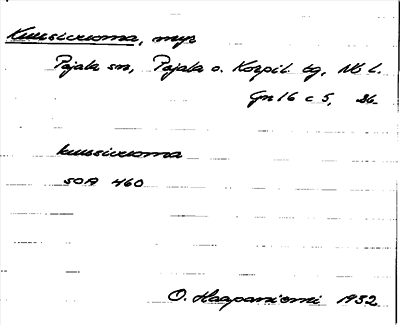 Kuusivuoma, myr
Pajala sn, Pajala o. Korpil. tg, Nb l.
Gn 16 c 5, Sk
kuusivuoma
SOA 460
O. Haapaniemi 1932